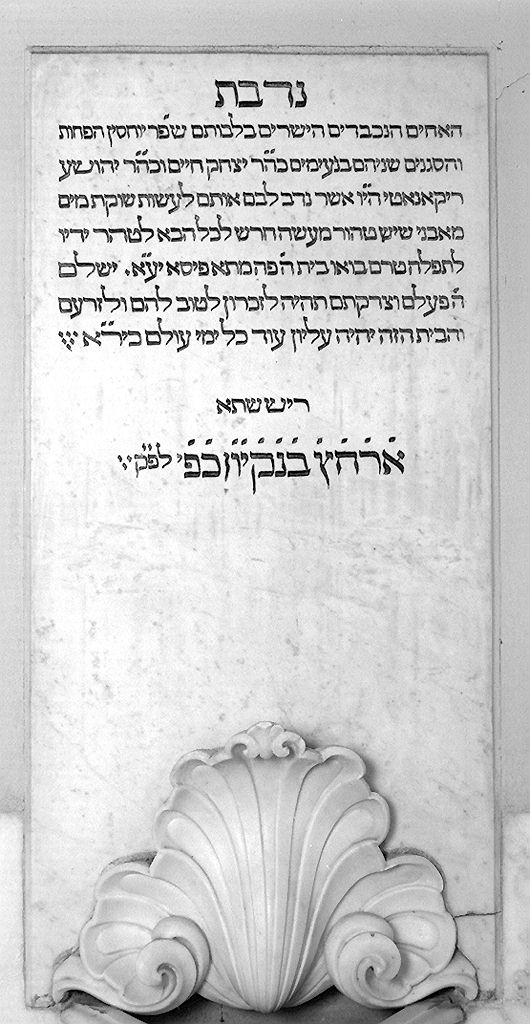 נדבת
האחים הנכבדים הישרים בלבותם שפ״ר יוחסין הפחות
והסגנים שניהם בנעימים כה״ר יצחק חיים וכה״ר יהושע
ריקאנאטי הי״ו אשר נדב לבם אותם לעשות שוקת מים
מאבני שיש טהור מעשה חרש לכל הבא לטהר ידיו
לתפלה טרם בואו בית ה׳ פה מתא פיסא יע״א. ישלם
ה׳ פעלם וצדקתם תהיה לזכרון לטוב להם ולזרעם
והבית הזה יהיה עליון עוד כל ימי עולם כיר״א
ריש שתא
ארחץ בנקיון כפי לפ״ק